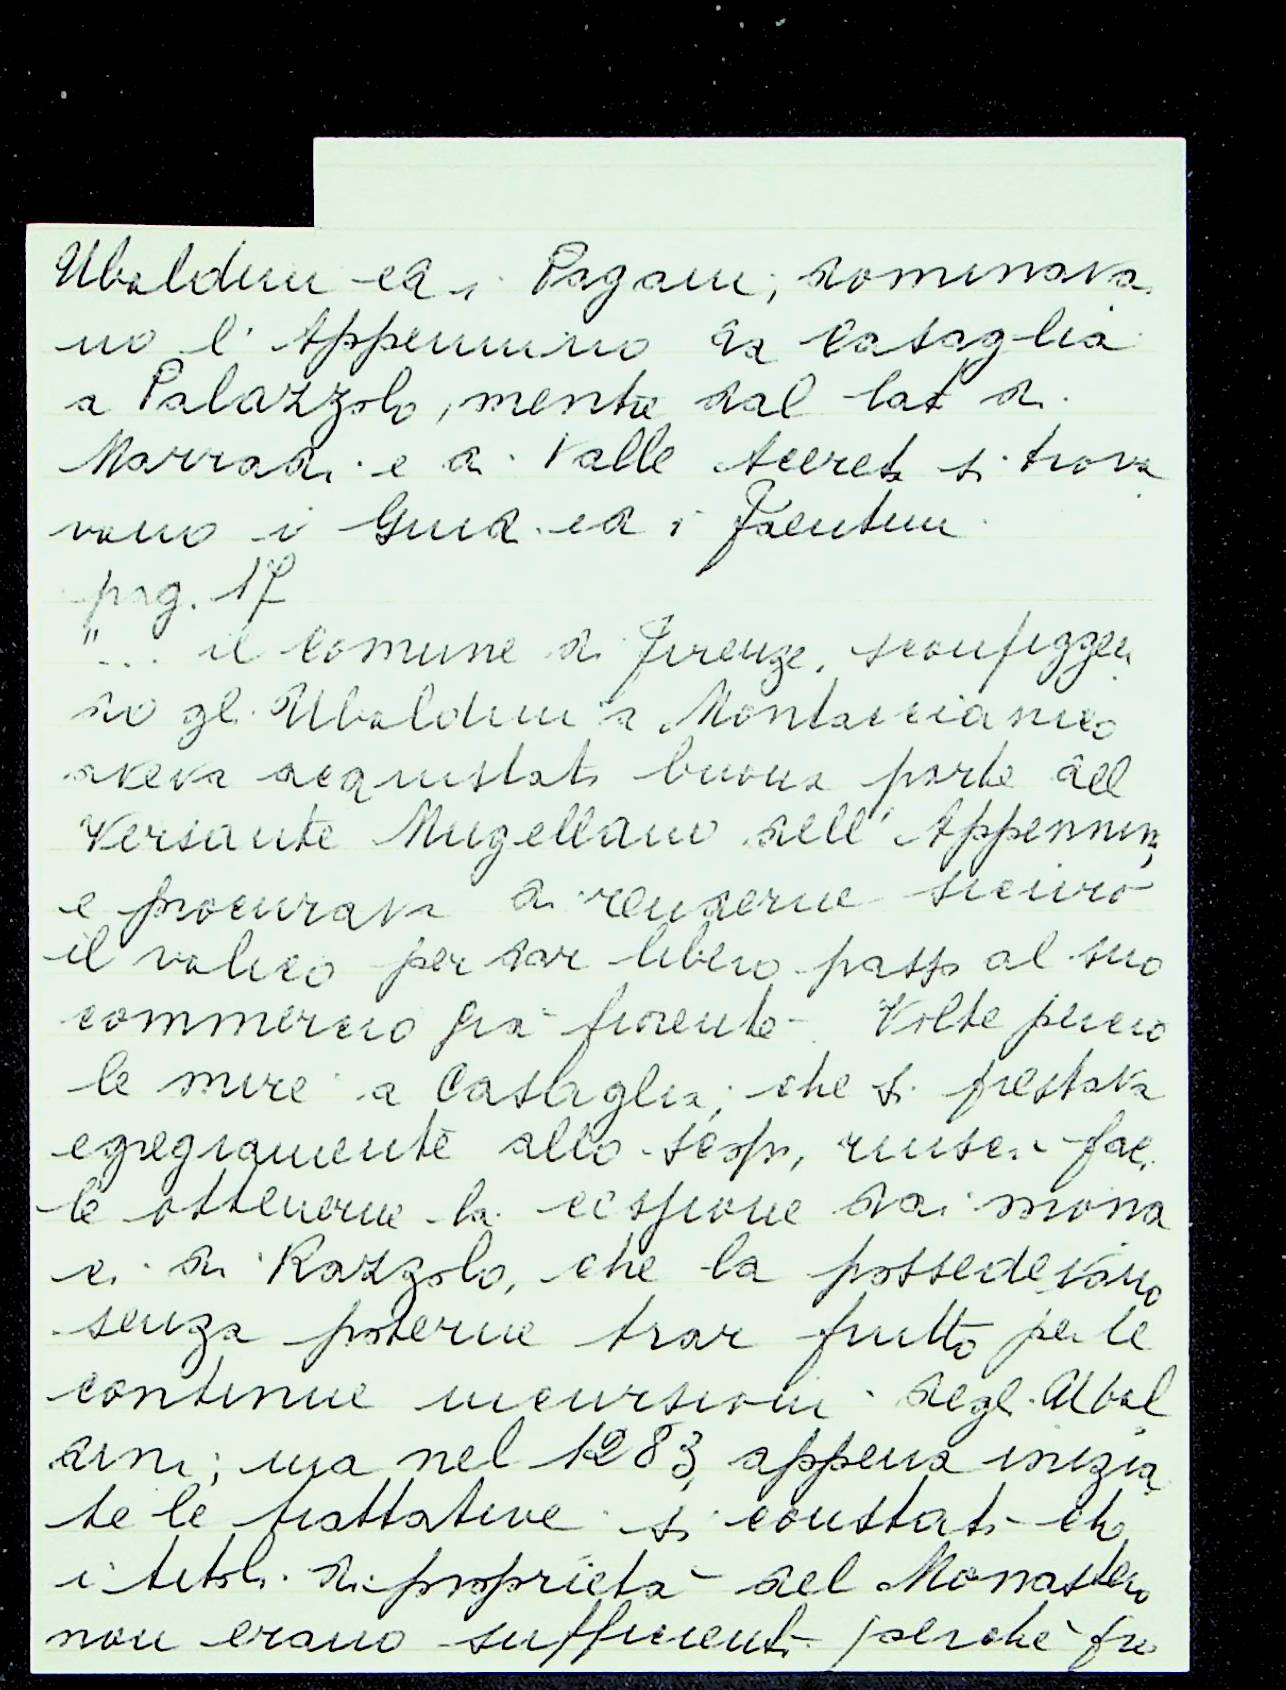 Ubaldini ed i Pagani, dominava
no l'Appennino da Casaglia
a Palazzolo, mentre dal lato di
Marradi e di Valle Acereta si trova
vano i Guidi ed i Faentini.
pag. 17
"... il Comune di Firenze, sconfiggen
do gli Ubaldini a Montaccianico
aveva acquistato buona parte del
Versante Mugellano dell'Appennino,
e procurava di renderne sicuro
il valico per dar libero passo al suo
commercio già fiorente. Volte perciò
le mire a Casaglia, che si prestava
egregiamente allo scopo, riuscì faci
le ottenerne la cessione dai mona
ci di Razzolo, che la possedevano
senza poterne trar frutto per le
continue incursioni degli Ubal
dini; ma nel 1283 appena inizia
te le trattative si constatò che
i titoli di proprietà del Monastero
non erano sufficienti perchè fra